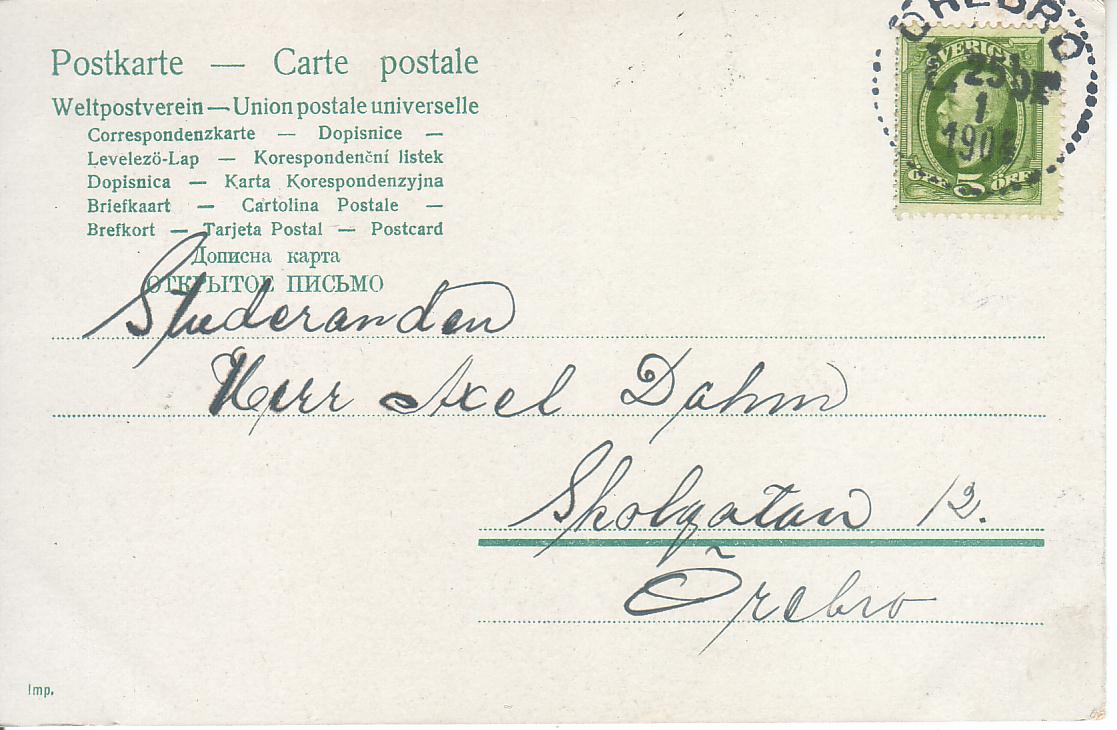 Postkarte — Carte postale
Weltpostverein — Union postale universelle
Correspondenzkarte — Dopisnice —
Levelező-Lap — Korespondenční listek
Dopisnica — Karta Korespondenzyjna
Briefkaart — Cartolina Postale —
Brefkort — Tarjeta Postal — Postcard
Дописна карта
ОТКРЫТОЕ ПИСЬМО
ÖREBRO
SVERIGE
25
1
190
ÖRE 5 ÖRE
Studeranden
Herr Axel Dahm
Skolgatan 12.
Örebro
Imp.